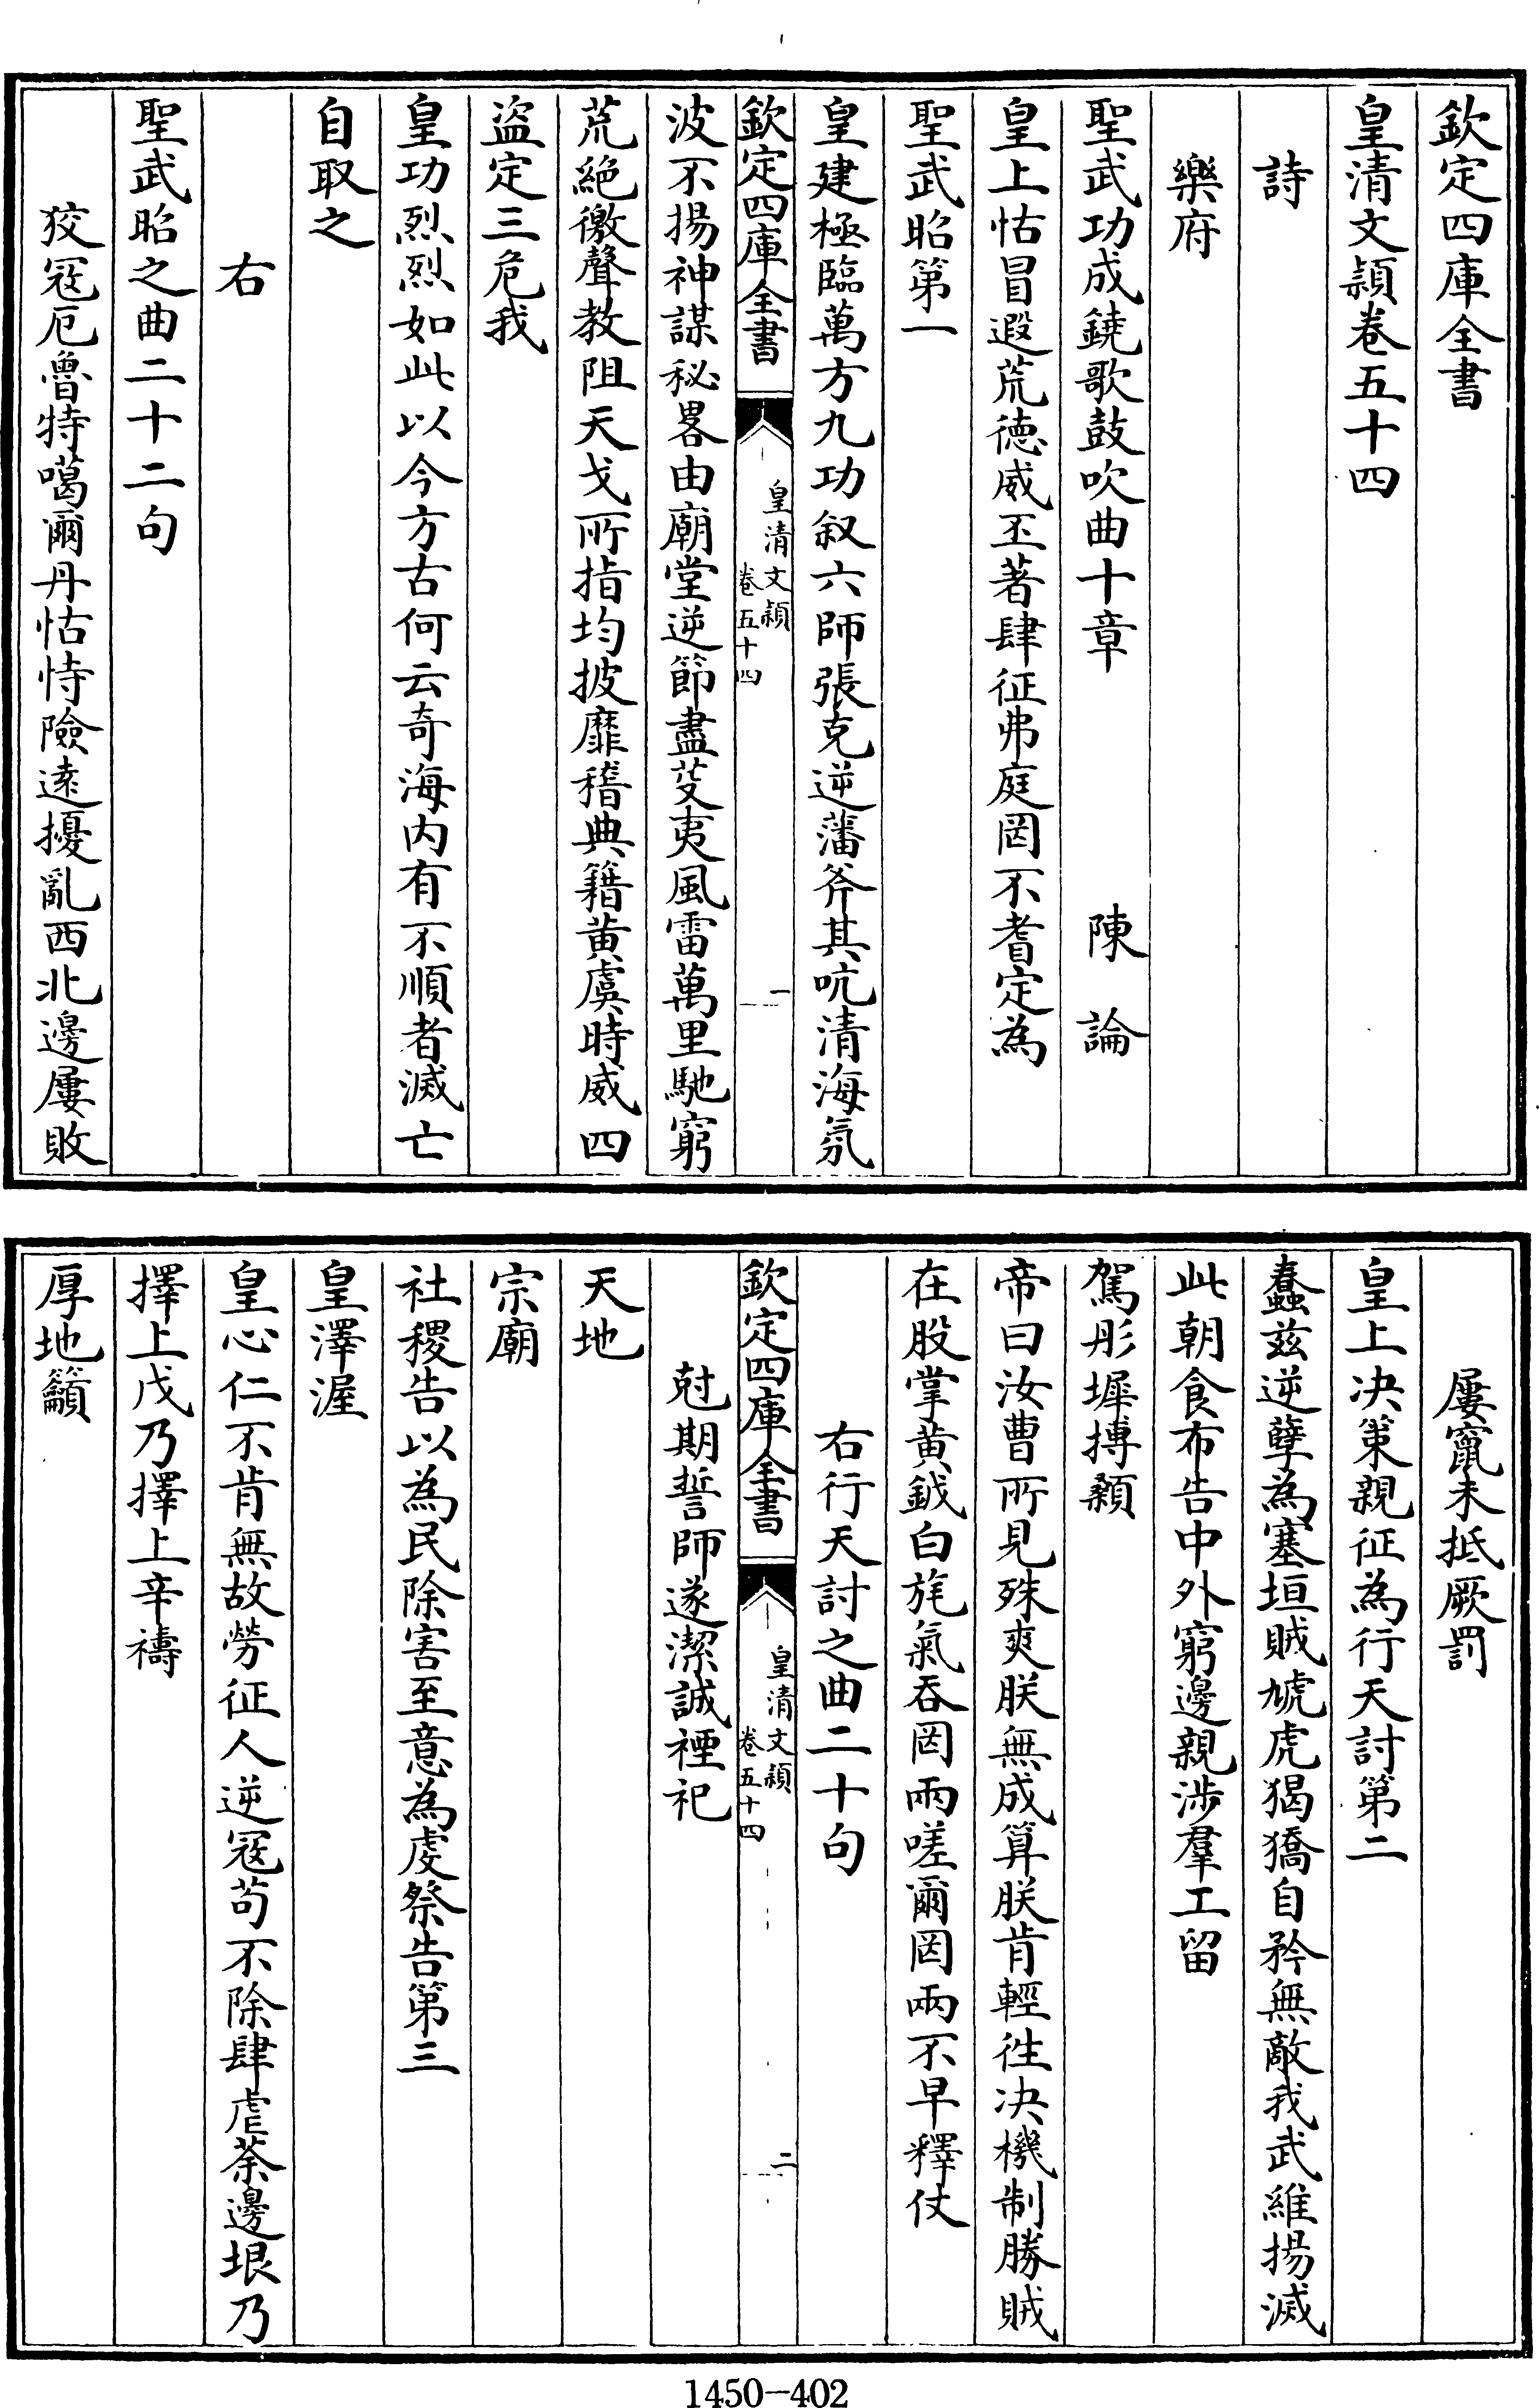 欽定四庫全書
皇清文頴卷五十四
詩
樂府
聖武功成鐃歌鼓吹曲十章 陳論
皇上怙冒遐荒德威丕著肆征弗庭罔不耆定為
聖武昭第一
皇建極臨萬方九功叙六師張克逆藩斧其吭清海氛
欽定四庫全書 皇清文頴 卷五十四 一
波不揚神謀秘畧由廟堂逆節盡芟夷風雷萬里馳窮
荒絶徼聲教阻天戈所指均披靡稽典籍黄虞時威四
盗定三危我
皇功烈烈如此以今方古何云奇海内有不順者滅亡
自取之
右
聖武昭之曲二十二句
狡寇厄魯特噶爾丹怙恃險逺擾亂西北邊屢敗
屢竄未抵厥罰
皇上决策親征為行天討第二
蠢兹逆孽為塞垣賊虓虎猲獢自矜無敵我武維揚滅
此朝食布告中外窮邊親涉羣工留
駕彤墀摶顙
帝曰汝曹所見殊爽朕無成算朕肯輕徃决機制勝賊
在股掌黄鉞白旄氣吞罔兩嗟爾罔兩不早釋仗
右行天討之曲二十句
欽定四庫全書 皇清文頴 卷五十四 二
尅期誓師遂潔誠禋祀
天地
宗廟
社稷告以為民除害至意為虔祭告第三
皇澤渥
皇心仁不肯無故勞征人逆寇苟不除肆虐荼邊垠乃
擇上戊乃擇上辛禱
厚地籲
1450-402